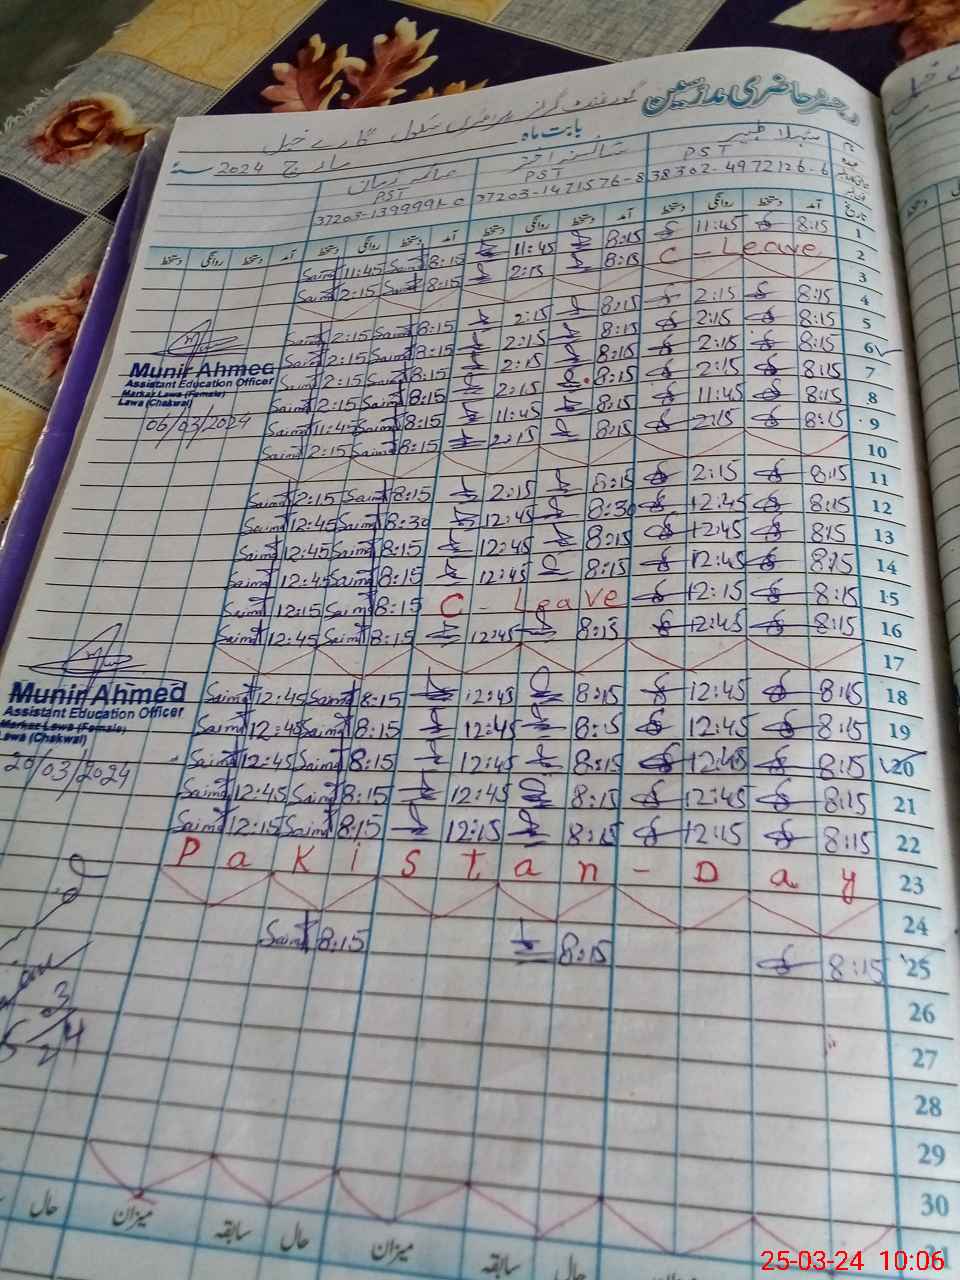 رجسٹر حاضری مدرسین
گورنمنٹ گرلز پرائمری سکول
بابت ماہ مارچ 2024
PST PST PST
38302-4972126-6
تاریخ
آمد دستخط روانگی دستخط آمد دستخط روانگی دستخط آمد دستخط روانگی دستخط آمد دستخط روانگی دستخط
1 8:15 11:45 8:15 11:45 Saima 8:15 Saima 11:45
2 C - Leave 8:15 2:15 Saima 8:15 Saima 2:15
3
4 8:15 2:15 8:15 2:15 Saima 8:15 Saima 2:15
5 8:15 2:15 8:15 2:15 Saima 8:15 Saima 2:15
6 8:15 2:15 8:15 2:15 Saima 8:15 Saima 2:15
7 8:15 2:15 8:15 2:15 Saima 8:15 Saima 2:15
8 8:15 11:45 8:15 11:45 Saima 8:15 Saima 11:45
9 8:15 2:15 8:15 2:15 Saima 8:15 Saima 2:15
Munir Ahmed
Assistant Education Officer
Markaz Lawa (Female)
Lawa (Chakwal)
06/03/2024
10
11 8:15 2:15 8:15 2:15 Saima 8:15 Saima 2:15
12 8:15 12:45 8:30 12:45 Saima 8:30 Saima 12:45
13 8:15 12:45 8:15 12:45 Saima 8:15 Saima 12:45
14 8:15 12:45 8:15 12:45 Saima 8:15 Saima 12:45
15 8:15 12:15 C - Leave Saima 8:15 Saima 12:15
16 8:15 12:45 8:15 12:45 Saima 8:15 Saima 12:45
17
18 8:15 12:45 8:15 12:45 Saima 8:15 Saima 12:45
19 8:15 12:45 8:15 12:45 Saima 8:15 Saima 12:45
20 8:15 12:45 8:15 12:45 Saima 8:15 Saima 12:45
21 8:15 12:45 8:15 12:45 Saima 8:15 Saima 12:45
22 8:15 12:15 8:15 12:15 Saima 8:15 Saima 12:15
Munir Ahmed
Assistant Education Officer
Markaz Lawa (Female)
Lawa (Chakwal)
20/03/2024
23 Pakistan-Day
24
25 8:15 8:15 Saima 8:15
26
27
28
29
30
31
میزان حال سابقہ میزان حال سابقہ میزان حال
25-03-24 10:06